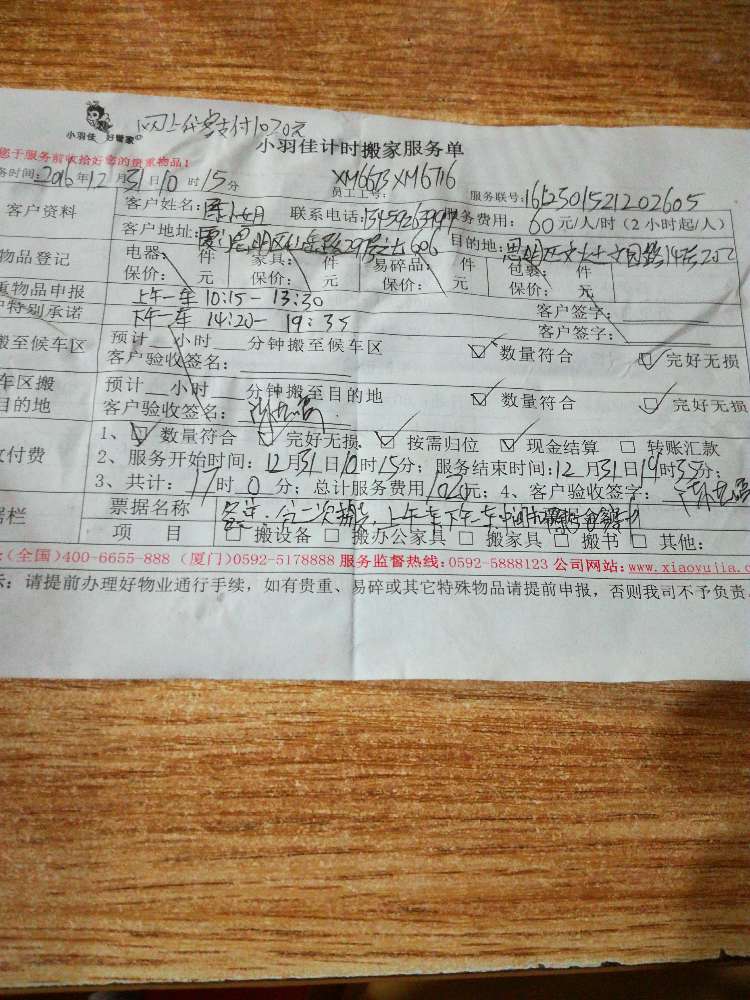 网上代客支付1020元
小羽佳 好管家
小羽佳计时搬家服务单
您于服务前收拾好您的贵重物品！
务时间：2016年12月31日10时15分 员工工号：XM6673 XM6716 服务联号：1612301521202605
客户资料 客户姓名： 联系电话： 服务费用：60元/人/时（2小时起/人）
客户地址： 目的地：
物品登记 电器： 件 家具： 件 易碎品： 件 包裹： 件
保价： 元 保价： 元 保价： 元 保价： 元
重物品申报 上午一车 10:15－13:30 客户签字：
户特别承诺 下午一车 14:20－19:35 客户签字：
搬至候车区 预计 小时 分钟搬至候车区 ☑ 数量符合 ☑ 完好无损
客户验收签名：
车区搬 预计 小时 分钟搬至目的地 ☑ 数量符合 ☑ 完好无损
目的地 客户验收签名：
收付费 1、☑ 数量符合 ☑ 完好无损 ☑ 按需归位 ☑ 现金结算 □ 转账汇款
2、服务开始时间：12月31日10时15分；服务结束时间：12月31日19时35分；
3、共计：17时0分；总计服务费用1020元；4、客户签收签字：
票据名称 上午一车下午一车
项 目 □ 搬设备 □ 搬办公家具 □ 搬家具 □ 搬书 □ 其他：
（全国）400-6655-888（厦门）0592-5178888 服务监督热线：0592-5888123 公司网站：www.xiaoyujia.c
示：请提前办理好物业通行手续，如有贵重、易碎或其它特殊物品请提前申报，否则我司不予负责。